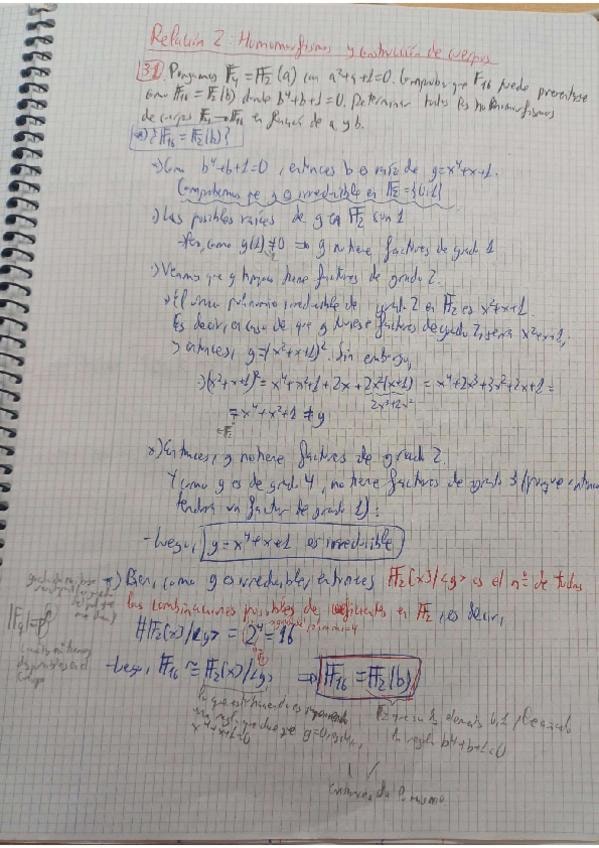 Relación 2: Homomorfismos y construcción de cuerpos
31. Pongamos F₄ = F₂(a) con a²+a+1=0. Comprobar que F₁₆ puede presentarse
como F₁₆ = F₂(b) donde b⁴+b+1=0. Determinar todos los homomorfismos
de cuerpos F₄→F₁₆ en función de a y b.
¿F₁₆ = F₂(b)?
Como b⁴+b+1=0, entonces b es raíz de g=x⁴+x+1.
Comprobemos que g es irreducible en F₂={0,1}
·) Las posibles raíces de g en F₂ son 1
Pero, como g(1)≠0 ⇒ g no tiene factores de grado 1
·) Veamos que g tampoco tiene factores de grado 2.
El único polinomio irreducible de grado 2 en F₂ es x²+x+1.
Es decir, en caso de que g tuviese factores de grado 2, sería x²+x+1,
y entonces, g=(x²+x+1)². Sin embargo,
(x²+x+1)² = x⁴+x²+1+2x+2x²(x+1) = x⁴+2x³+3x²+2x+1 =
2x³+2x²
= x⁴+x²+1 ≠ g
F₂
Entonces, g no tiene factores de grado 2.
Y como g es de grado 4, no tiene factores de grado 3 (porque entonces
tendría un factor de grado 1).
Luego, g=x⁴+x+1 es irreducible
Bien, como g es irreducible, entonces F₂[x]/<g> es el nº de todas
las combinaciones posibles de coeficientes en F₂, es decir,
#F₂[x]/<g> = 2⁴ = 16
Luego, F₁₆ ≅ F₂[x]/<g> ⇒ F₁₆ = F₂(b)
g=0, es decir,
x⁴+x+1=0
la regla b⁴+b+1=0
Entonces da lo mismo